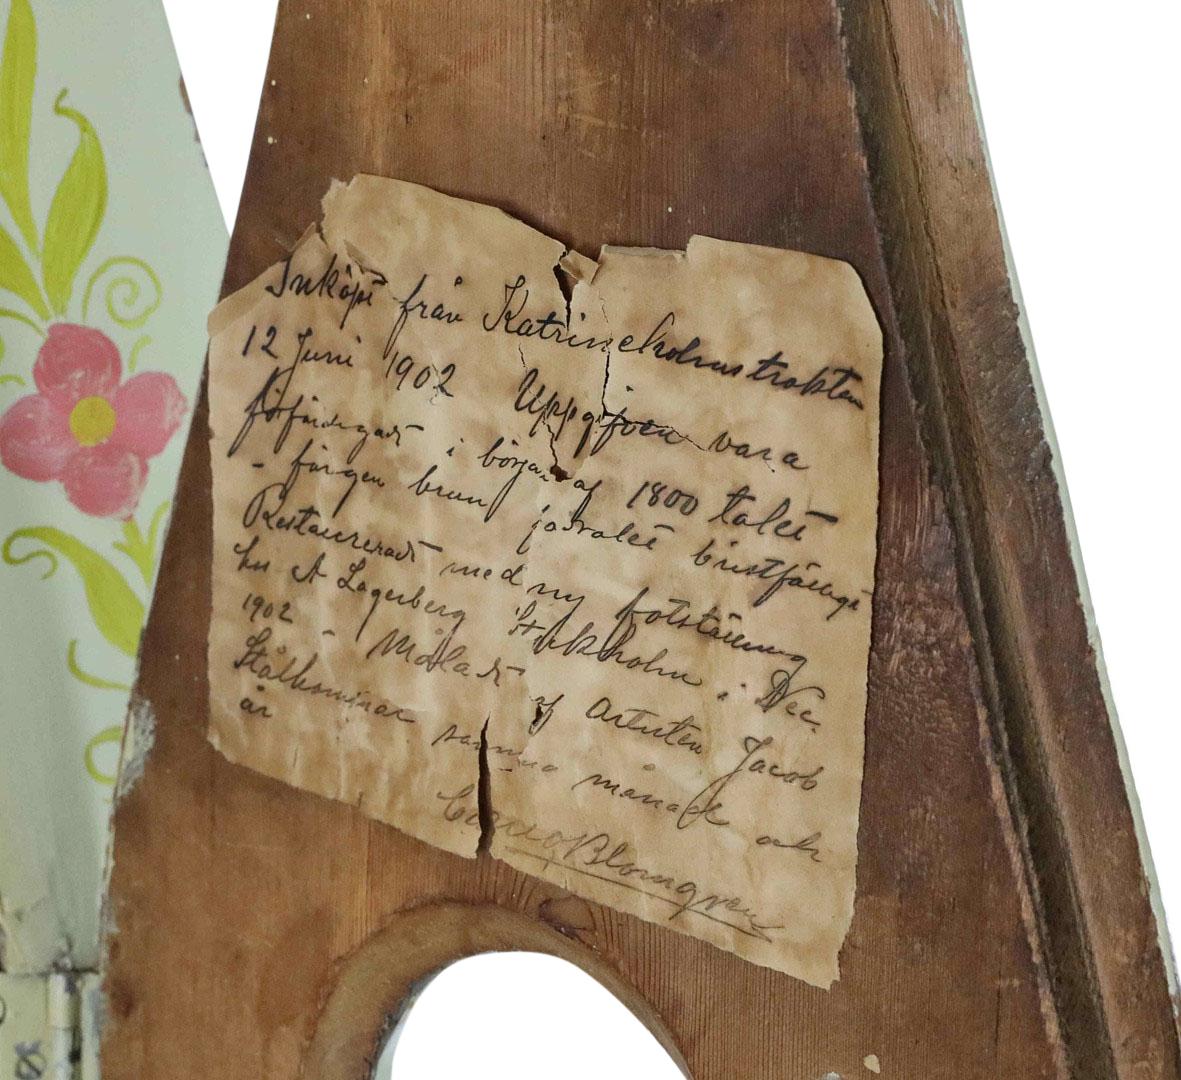 Inköpt från Katrineholmstrakten
12 Juni 1902 Uppgifven vara
förfärdigadt i början af 1800 talet
- färgen brun
Restaureradt med ny fotställning
hos A Lagerberg Stockholm i Dec.
1902 - Måladt af Artisten Jacob
Stålhammar samma månad och
år
Blomgren